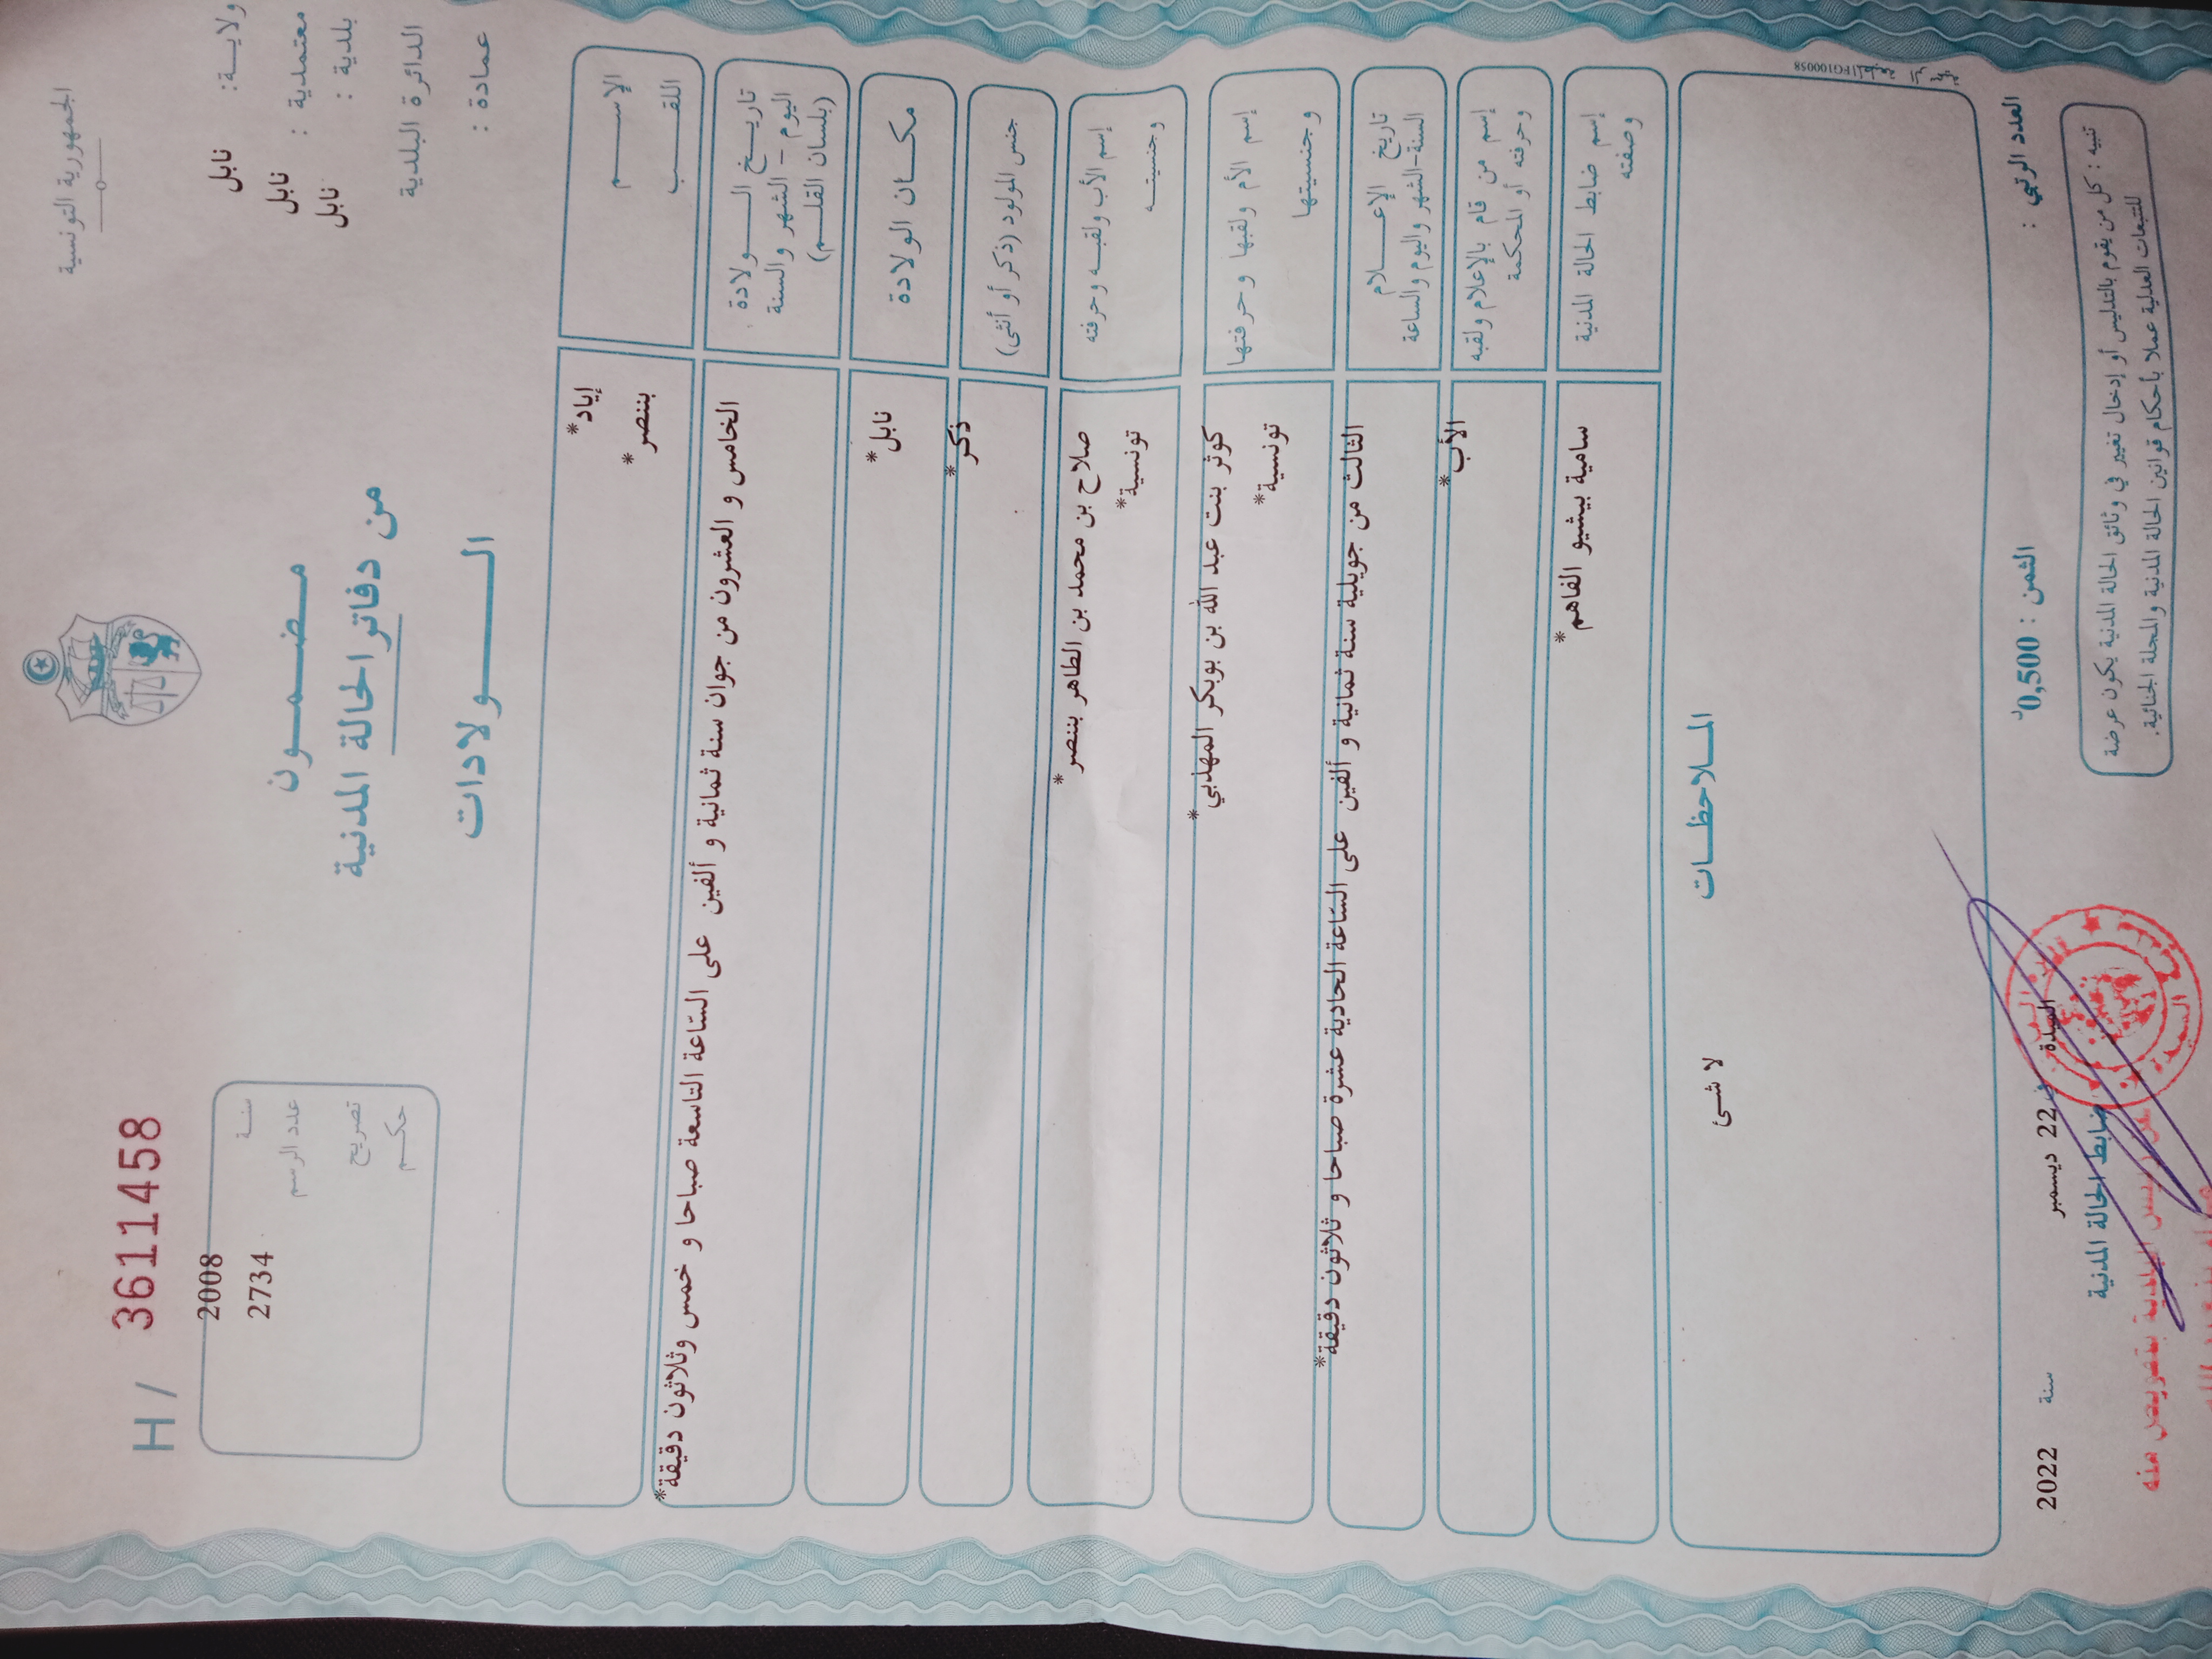 الجمهورية التونسية
H / 3611458
ولايـــة: نابل
معتمدية : نابل
بلدية : نابل
الدائرة البلدية
عمادة :
مـضـمــون
من دفاتر الحالة المدنية
الـــــولادات
سنــة 2008
عدد الرسم 2734
تصريح
حكـــم
الإســـــم إياد*
اللقـــب بننصر*
تاريـــخ الـــــولادة
اليوم - الشهر والسنة
(بلسان القلـــم)
الخامس و العشرون من جوان سنة ثمانية و ألفين على السّاعة التاسعة صباحا و خمس وثلاثون دقيقة*
مكـــان الولادة نابل*
جنس المولود (ذكر أو أنثى) ذكر*
إسم الأب ولقبـــه وحرفته صلاح بن محمد بن الطاهر بننصر*
وجنسيتـــه تونسية*
إسم الأم ولقبها وحرفتها كوثر بنت عبد الله بن بوبكر المهذبي*
وجنسيتها تونسية*
تاريخ الإعـــــلام
السنة-الشهر واليوم والساعة
الثالث من جويلية سنة ثمانية و ألفين على السّاعة الحادية عشرة صباحا و ثلاثون دقيقة*
إسم من قام بالإعلام ولقبه
وحرفته أو المحكمة
الأب*
إسم ضابط الحالة المدنية
وصفته
سامية بيشيو الفاهم*
المـــلاحظـــات
لا شئ
FG100058
العدد الرتبي :
الثمن : 0,500د
في 22 ديسمبر سنة 2022
السيدة
ضابط الحالة المدنية
تنبيه : كل من يقوم بالتدليس أو إدخال تغيير في وثائق الحالة المدنية يكون عرضة
للتتبعات العدلية عملا بأحكام قوانين الحالة المدنية والمجلة الجنائية.
عن رئيس البلدية بتفويض منه